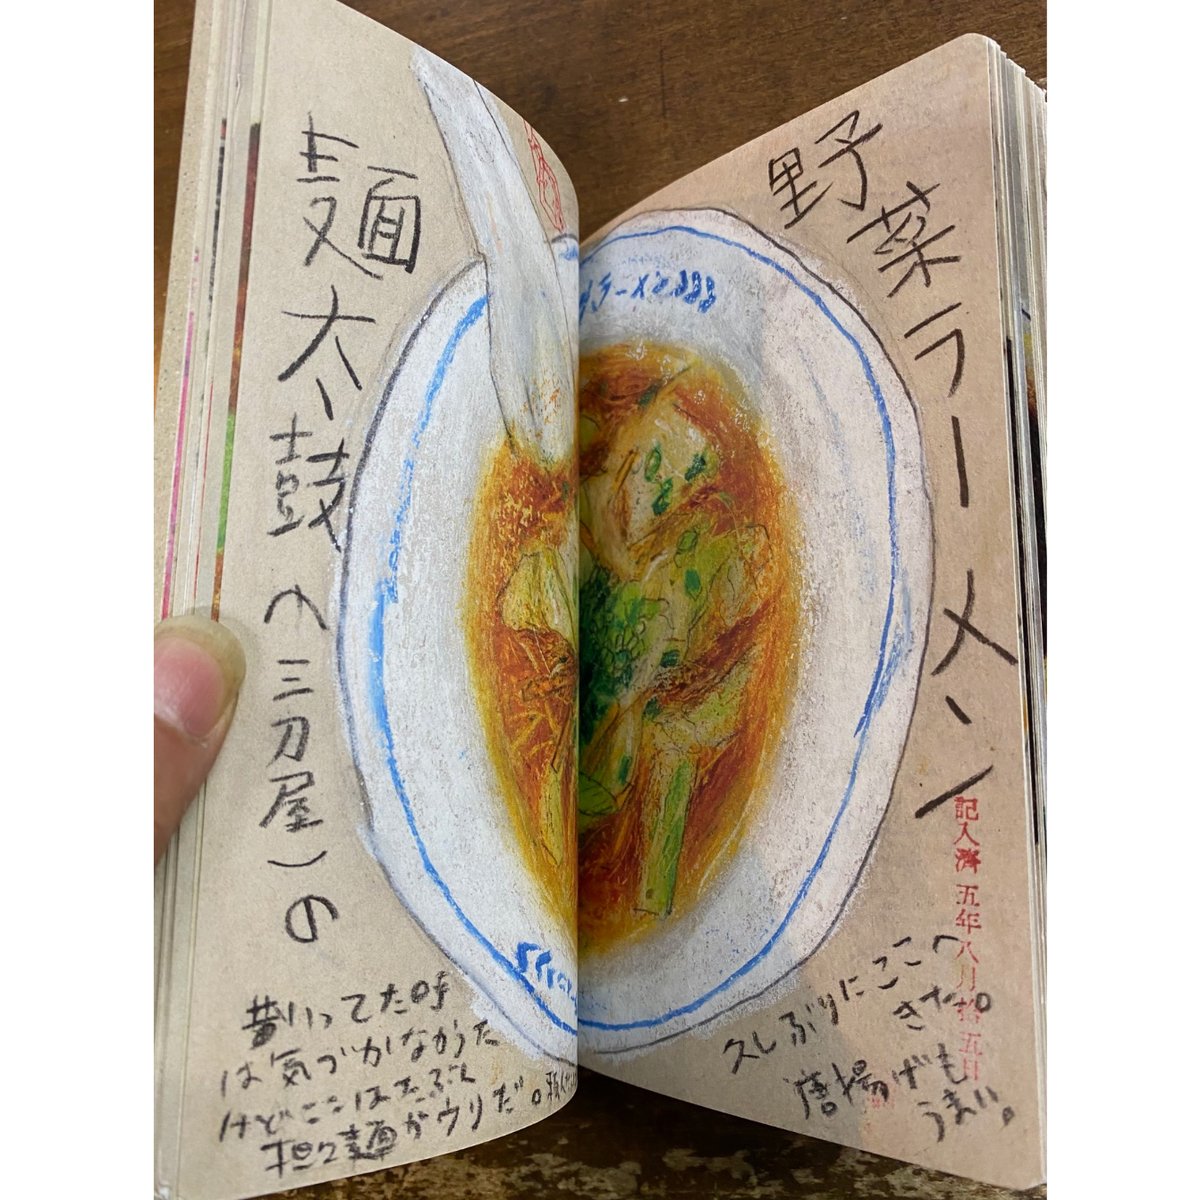 麺太鼓(三刀屋)の
野菜ラーメン
昔いってた時
は気づかなかった
けどここはたぶん
担々麺がウリだ。
久しぶりにここへ
きた。
唐揚げも
うまい。
記入濟 五年八月拾五日